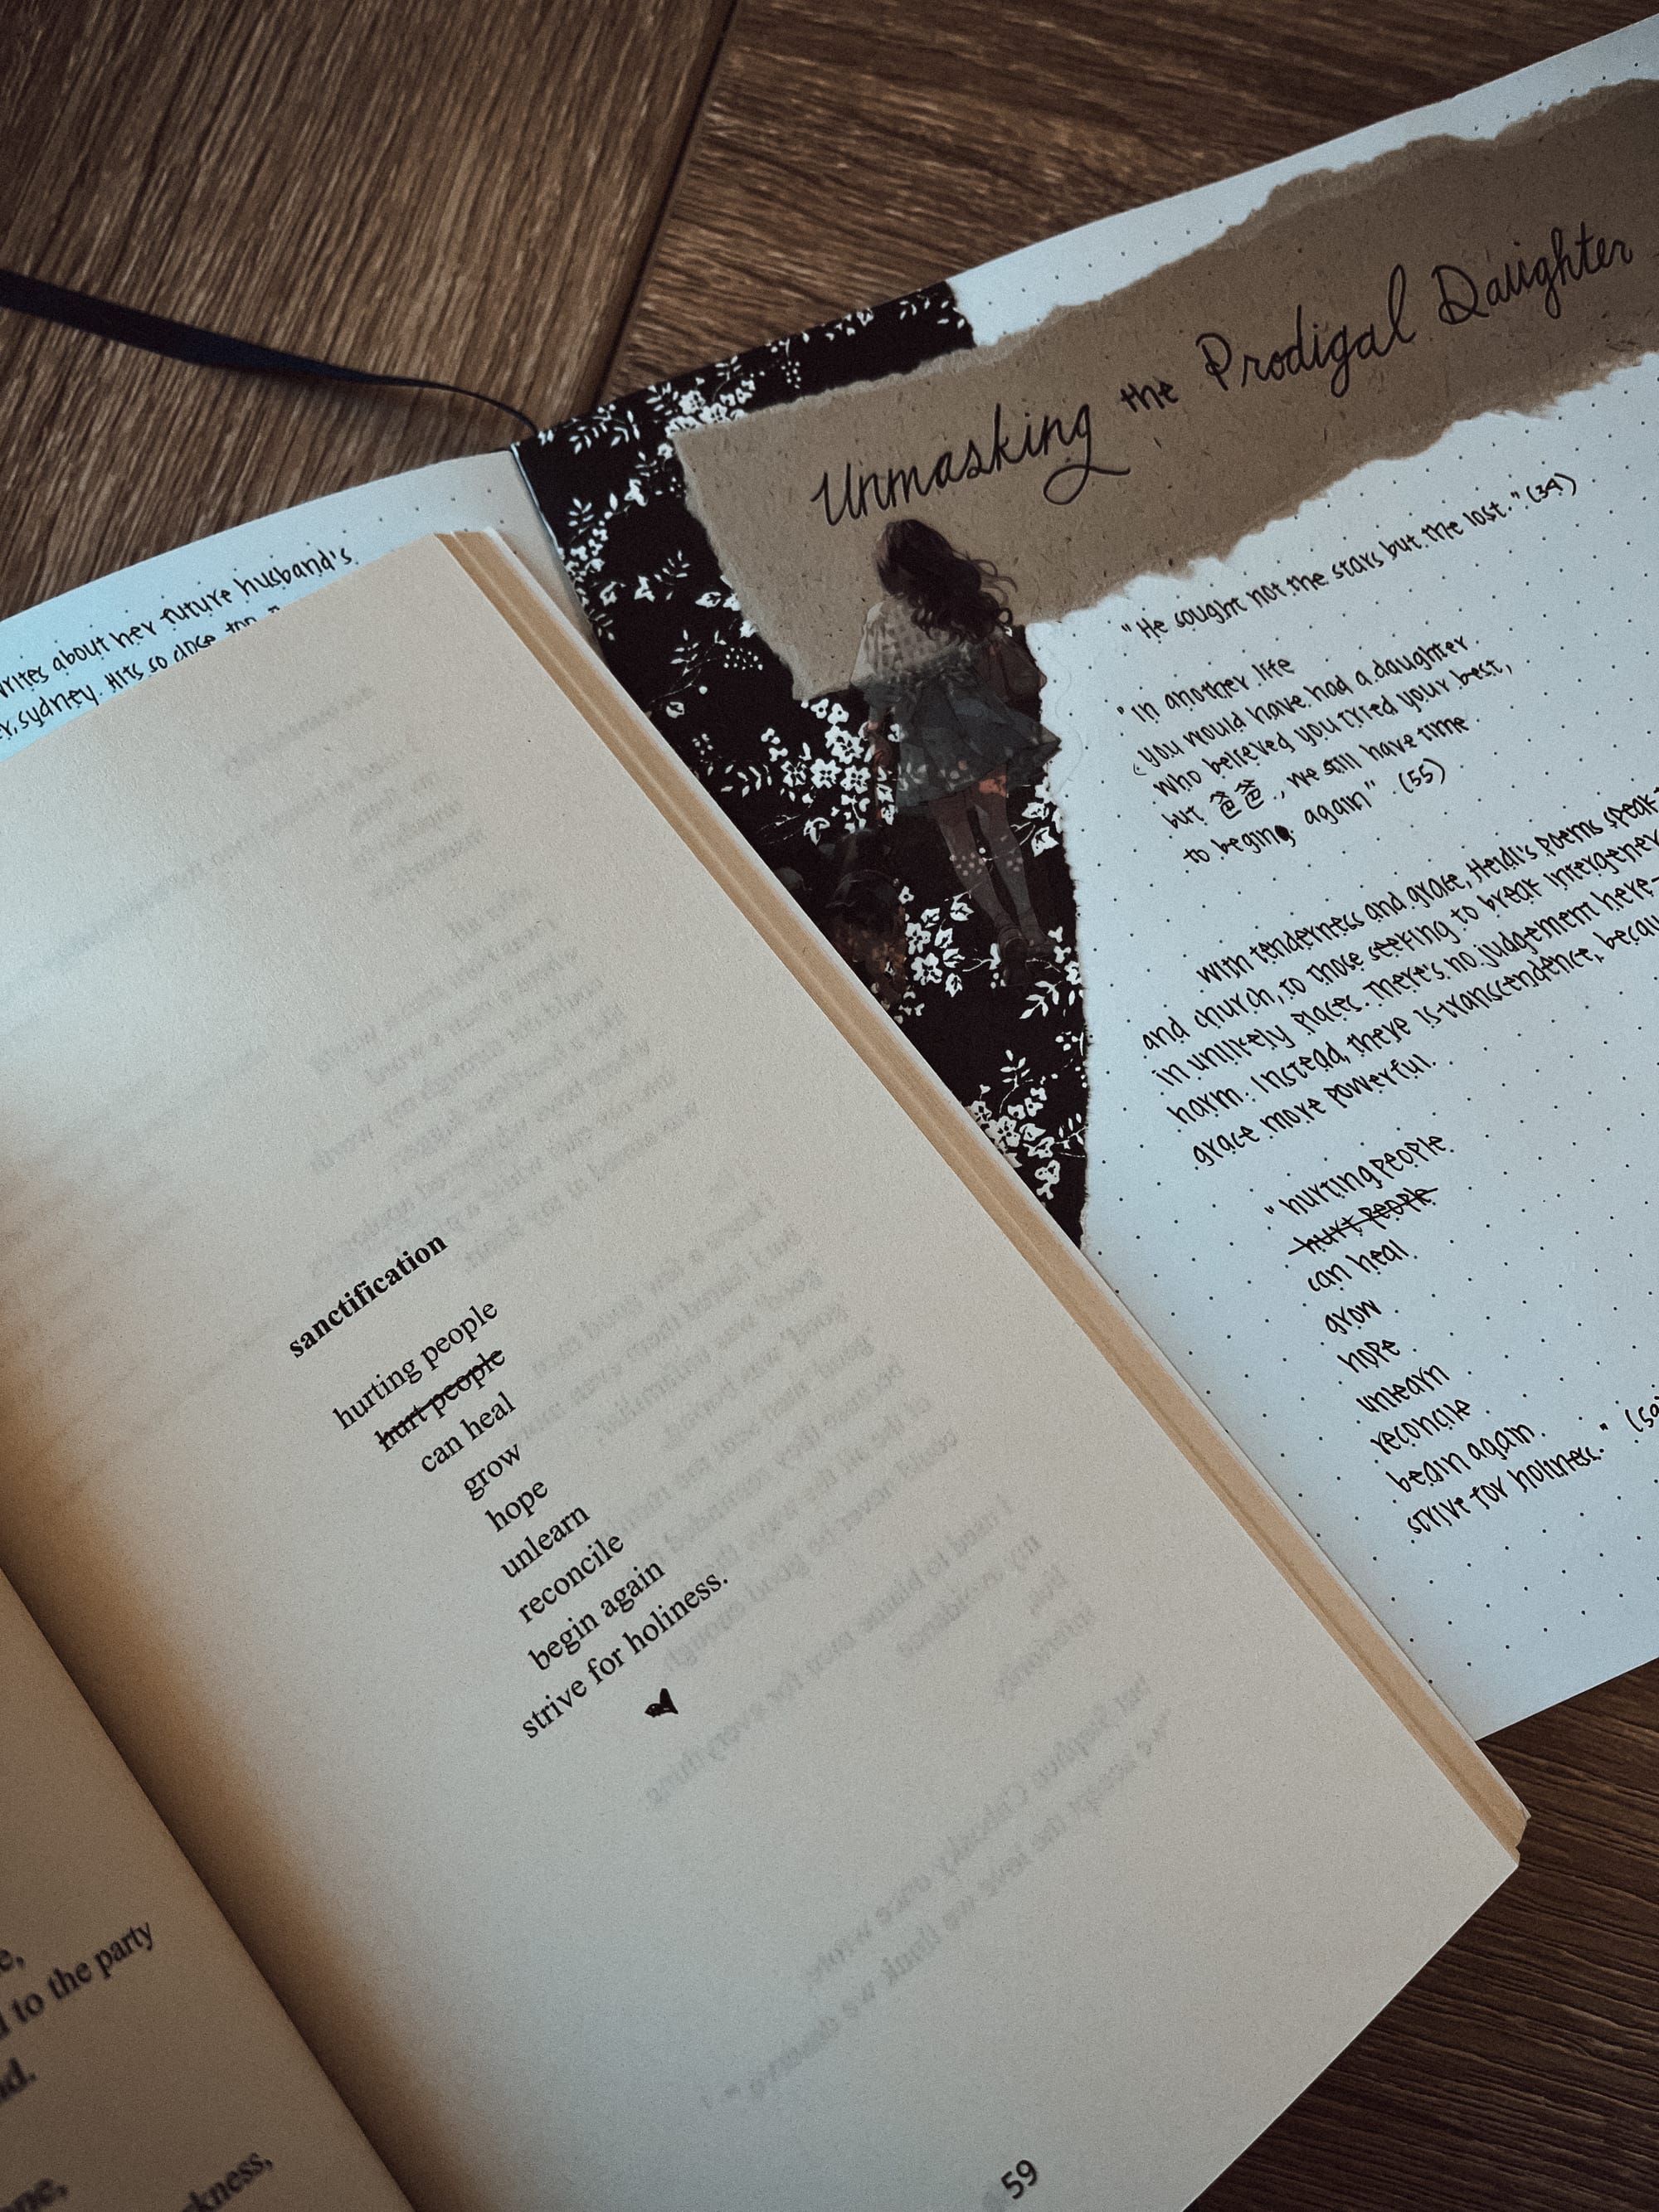 writes about her future husband's
sydney. Hits so close too
Unmasking the Prodigal Daughter
"He sought not the stars but the lost." (34)
"In another life
you would have had a daughter
who believed you tried your best,
but 爸爸, we still have time
to begin again" (55)
With tenderness and grace, Heidi's poems speak
and church, to those seeking to break
in unlikely places. There's no judgement here-
harm. Instead, there is transcendence,
grace more powerful.
"hurting people
hurt people
can heal
grow
hope
unlearn
reconcile
begin again
strive for holiness."
sanctification
hurting people
hurt people
can heal
grow
hope
unlearn
reconcile
begin again
strive for holiness.
59
to the party